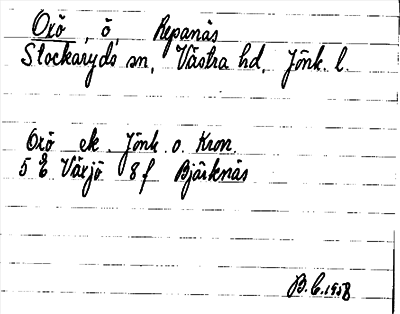 Orö, ö, Repanäs
Stockaryds sn, Västra hd, Jönk. l.
Orö ek. Jönk. o. Kron.
5 E Växjö 8 f Bjärknäs
B.C. 1958